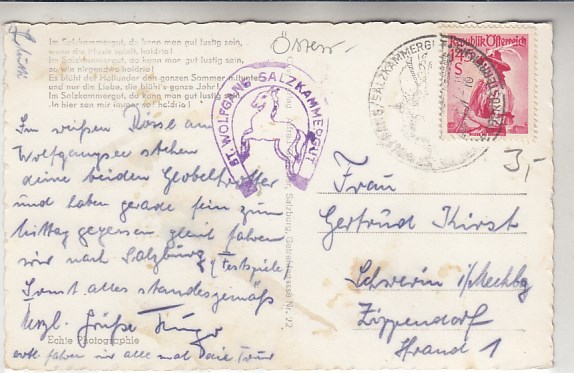 Im Salzkammergut, da kann man gut lustig sein,
wenn die Musik spielt, holdrio!
Im Salzkammergut, da kann man gut lustig sein,
so wie nirgendwo holdrio!
Es blüht der Holunder den ganzen Sommer mitunter
und nur die Liebe, die blüht's ganze Jahr!
Im Salzkammergut, da kann man gut lustig sein,
holdrio!
Österr.
ST. WOLFGANG SALZKAMMERGUT
Republik Österreich
S
3,-
Im weißen Rössl am
Wolfgangsee stehen
deine beiden Globetrotter
und haben gerade fein zum
Mittag gegessen, gleich fahren
wir nach Salzburg z. Festspiele
Sonst alles standesgemäß
Herzl. Grüße
Echte Photographie
Salzburg, Getreidegasse Nr. 22
Frau
Gertrud Kirst
Schwerin i/Mecklbg
Zippendorf
Strand 1